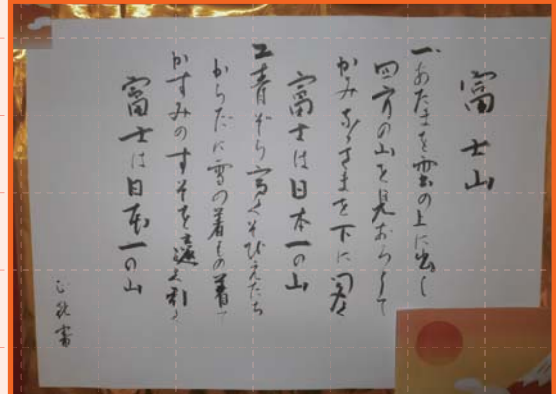 富士山
一、あたまを雲の上に出し
四方の山を見おろして
かみなりさまを下に聞く
富士は日本一の山
二、青ぞら高くそびえたち
からだに雪の着もの着て
かすみのすそを遠く引く
富士は日本一の山